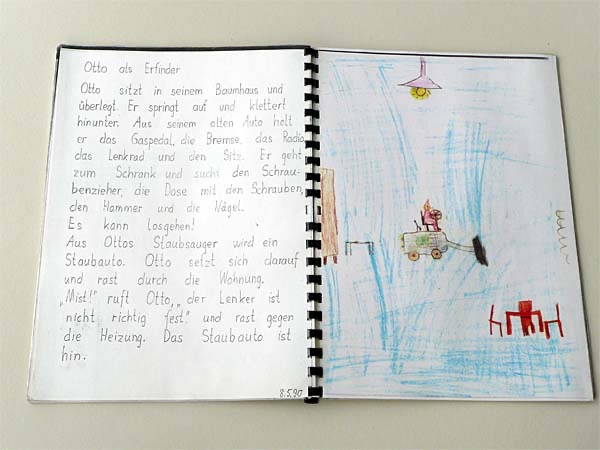 Otto als Erfinder
Otto sitzt in seinem Baumhaus und
überlegt. Er springt auf und klettert
hinunter. Aus seinem alten Auto holt
er das Gaspedal, die Bremse, das Radio,
das Lenkrad und den Sitz. Er geht
zum Schrank und sucht den Schrau-
benzieher, die Dose mit den Schrauben,
den Hammer und die Nägel.
Es kann losgehen!
Aus Ottos Staubsauger wird ein
Staubauto. Otto setzt sich darauf
und rast durch die Wohnung.
„Mist!" ruft Otto, „der Lenker ist
nicht richtig fest" und rast gegen
die Heizung. Das Staubauto ist
hin.
8.5.90